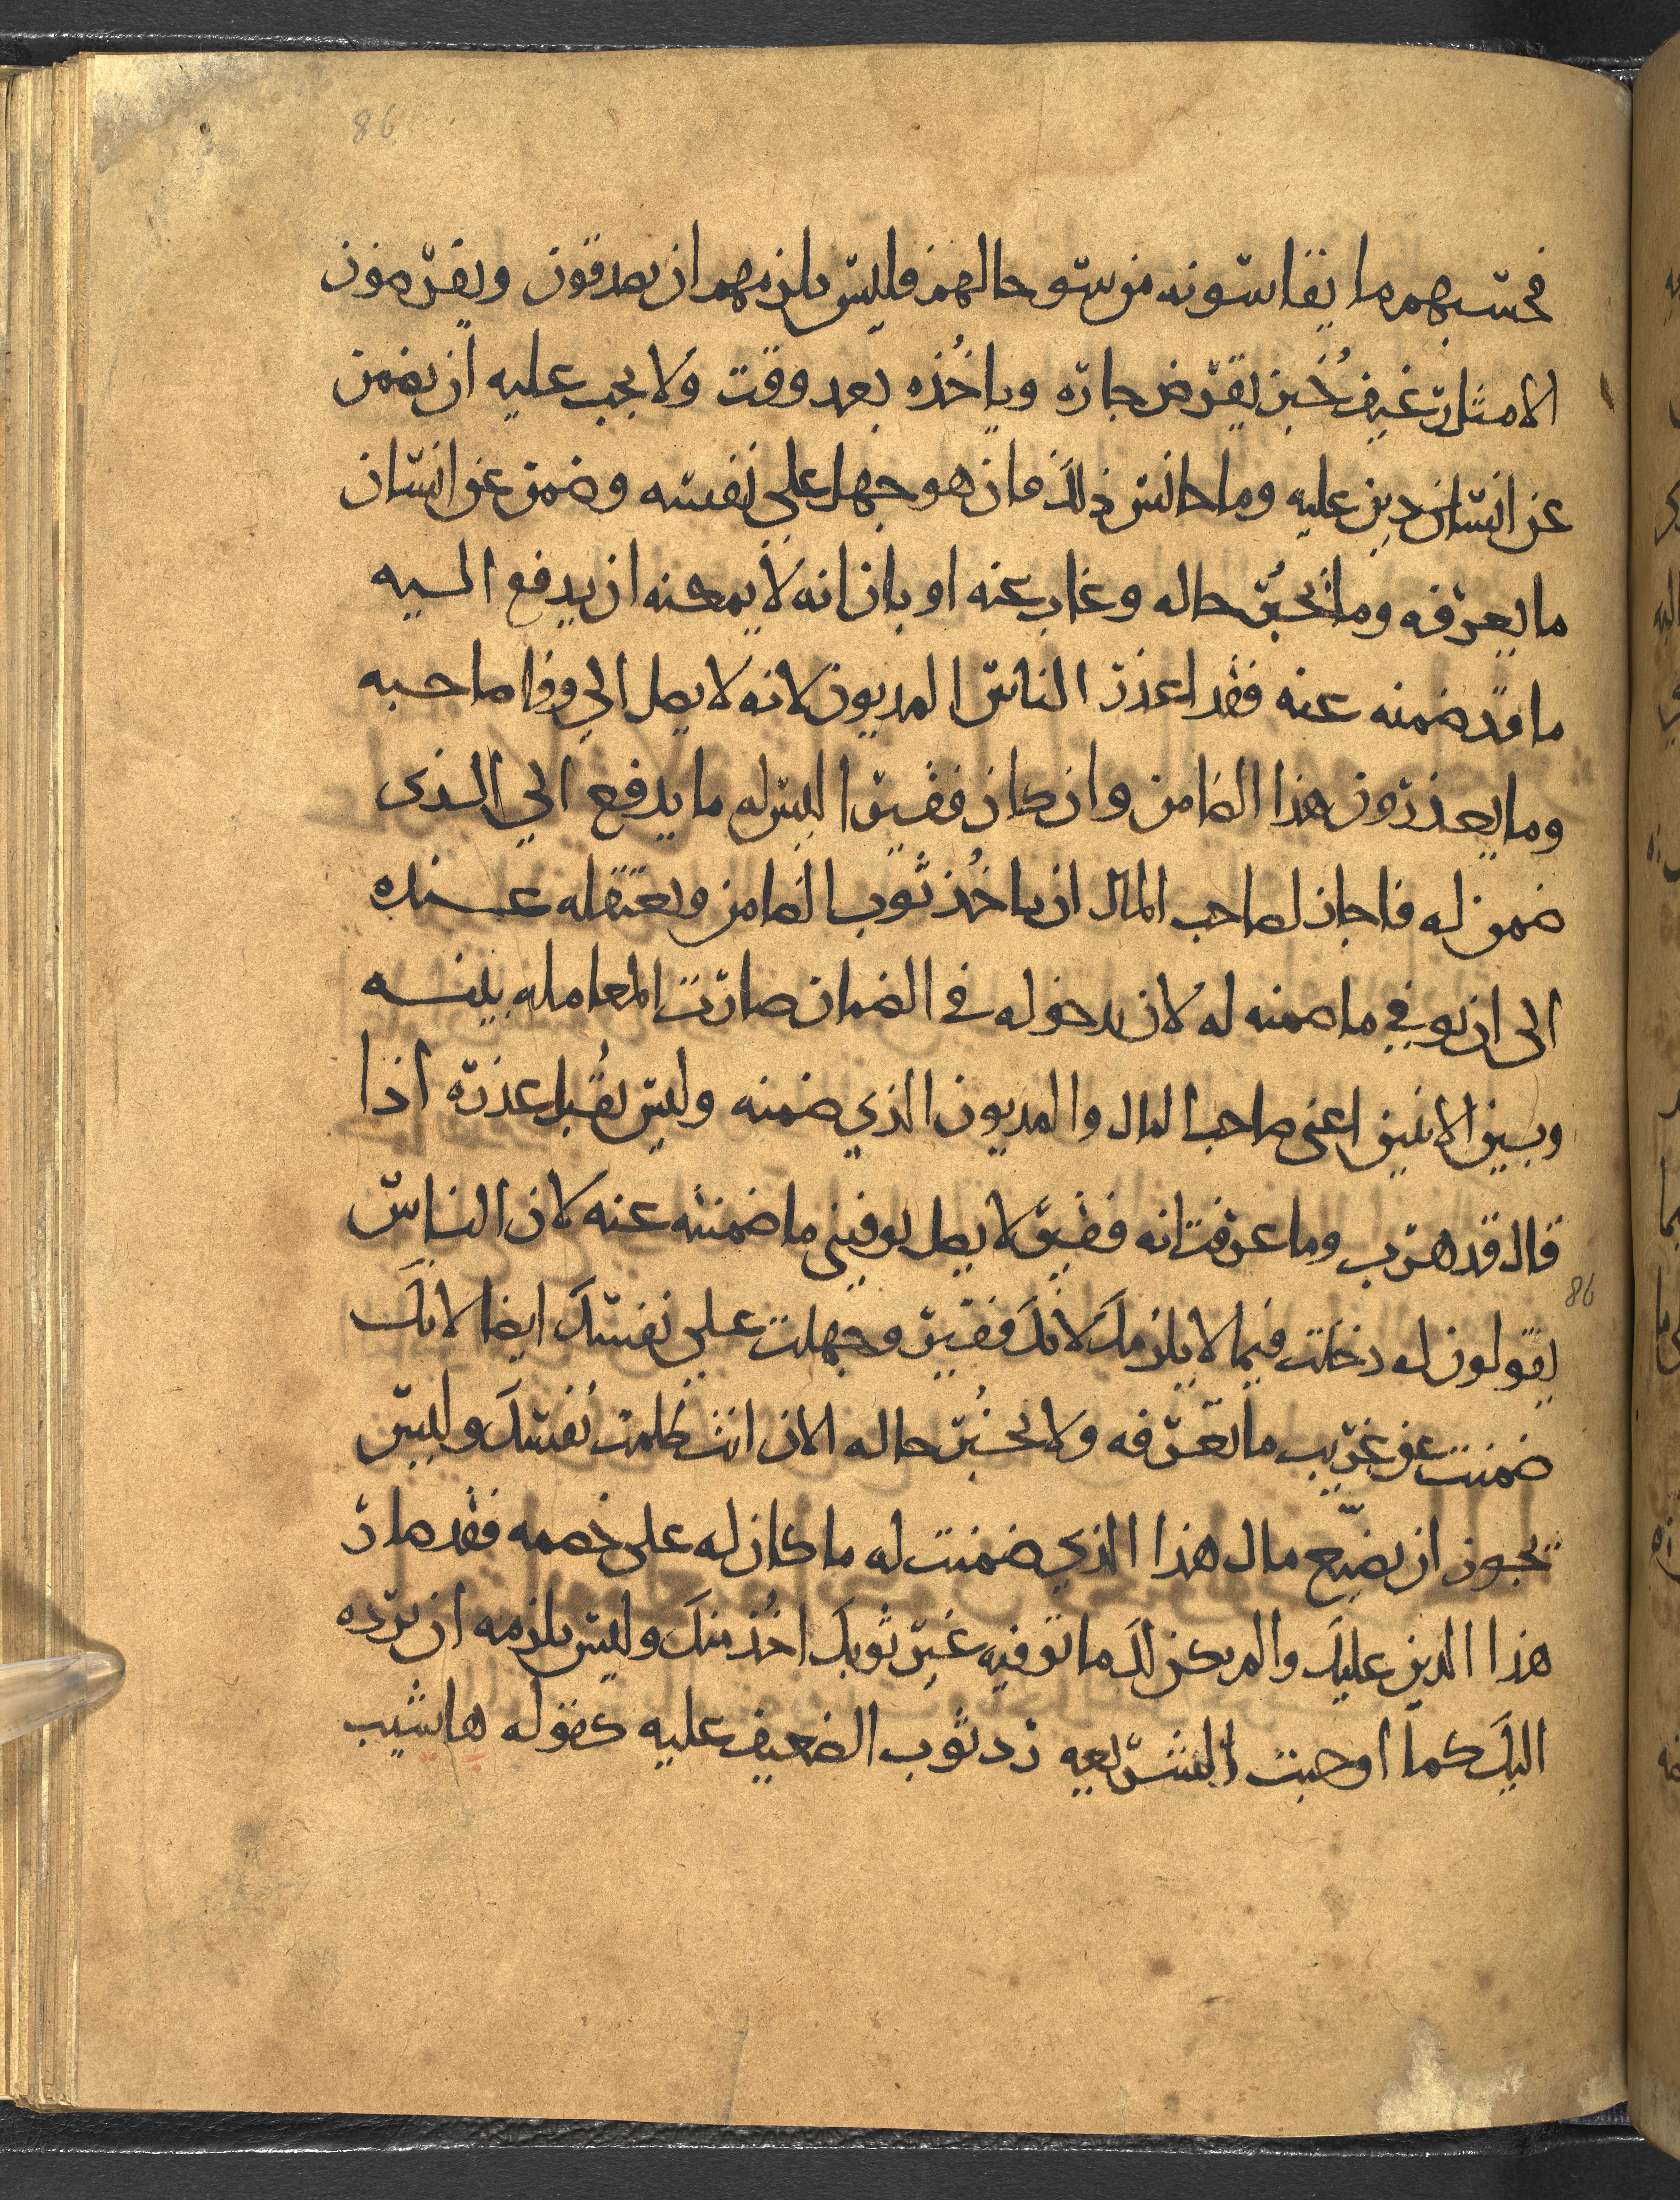 86
فحسبهم ما يقاسونه من سو حالهم فليس يلزمهم ان يصدقون ويقرضون
الا مثل رغيف خُبز يقرض جاره وياخُذه بعد وقت ولا يجب عليه ان يضمن
عن انسان دين عليه وما جانس ذلك فان هو جهل علي نفسه وضمن عن انسان
ما يعرفه وما يخبُر حاله وغاب عنه او بان انه لا يمكنه ان يدفع اليه
ما قد ضمنه عنه فقد اعذر الناس المديون لانه لا يصل الي وفا صاحبه
وما يعذرون هذا الضامن وان كان فقيرا ليس له ما يدفع الي الذي
ضمن له فاجاز لصاحب المال ان ياخُذ ثوب الضامن ويعتقله عنده
الى ان يوفي ما ضمنه له لان بدخوله في الضمان صارت المعامله بينه
وبين الاثنين اعني صاحب المال والمديون الذي ضمنه وليس يقُبل عذره اذا
قال قد هرب وما عرفت انه فقير لا يصل يوفيني ما ضمنته عنه لان الناس
86
يقولون له دخلت فيما لا يلزمك لانك فقير وجهلت علي نفسك ايضا لانك
ضمنت عن غريب ما تعرفه ولا تخبُر حاله الان انت ظلمت نفسك وليس
يجوز ان يضيّع مال هذا الذي ضمنت له ما كان له على خصمه فقد صار
هذا الدين عليك والم يكن لك ما توفيه غير ثوبك اخُذ منك وليس يلزمه ان يرده
اليك كما اوجبت الشريعه رد ثوب الضعيف عليه كقوله هاشيب